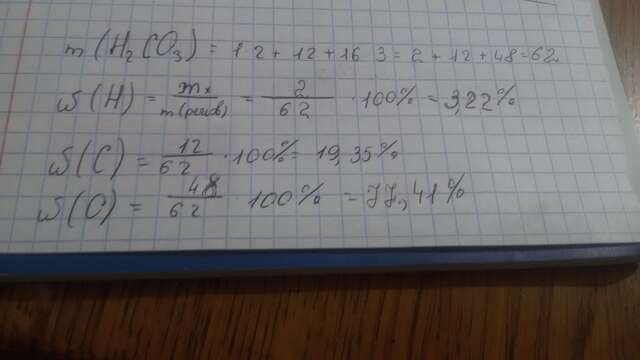 m (H₂CO₃) = 1·2 + 12 + 16 3 = 2 + 12 + 48 = 62
ω(H) = mₓ/m(речов) = 2/62 · 100% = 3,22%
ω(C) = 12/62 · 100% = 19,35%
ω(O) = 48/62 · 100% = 77,41%